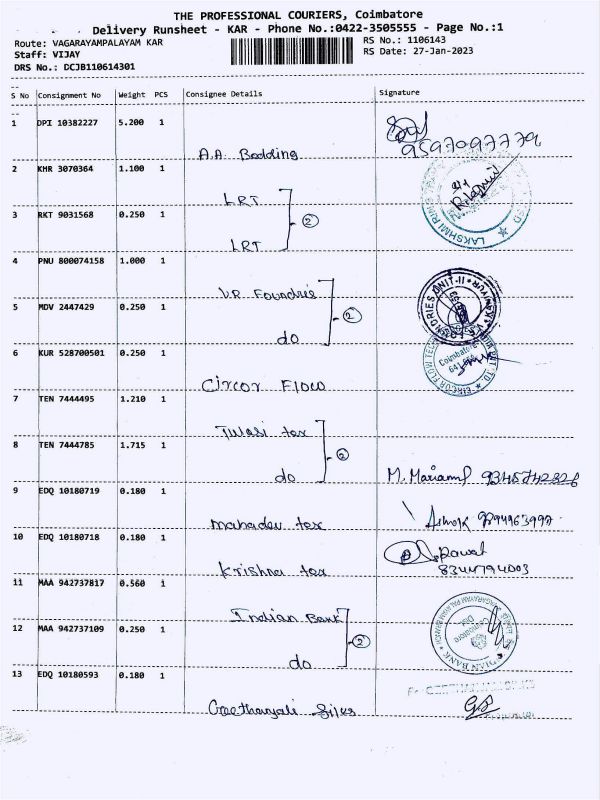 THE PROFESSIONAL COURIERS, Coimbatore
Delivery Runsheet - KAR - Phone No.:0422-3505555 - Page No.:1
Route: VAGARAYAMPALAYAM KAR
RS No.: 1106143
Staff: VIJAY
RS Date: 27-Jan-2023
DRS No.: DCJB110614301
S No Consignment No Weight PCS Consignee Details Signature
1 DPI 10382227 5.200 1
9597097779
A.A. Bedding
2 KHR 3070364 1.100 1
LRT
3 RKT 9031568 0.250 1
2
LRT
LAKSHMI RING
4 PNU 800074158 1.000 1
V.R Foundries
5 MDV 2447429 0.250 1
2
do
6 KUR 528700501 0.250 1
Coimbatore
Circor Flow
7 TEN 7444495 1.210 1
Tulasi tex
8 TEN 7444785 1.715 1
2
do
M. Mariam 9345742326
9 EDQ 10180719 0.180 1
Mahadev tex
Ashok
10 EDQ 10180718 0.180 1
Rawat
8344794003
Krishna tex
11 MAA 942737817 0.560 1
Indian Bank
12 MAA 942737109 0.250 1
2
do
INDIAN BANK
Coimbatore
13 EDQ 10180593 0.180 1
Geethanjali Silks